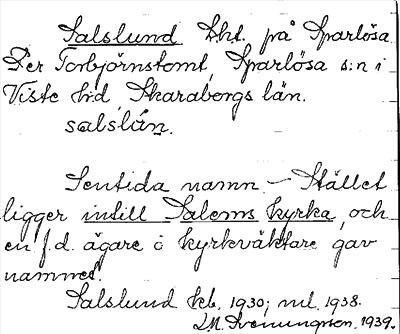 Salslund Lht. på Sparlösa
Per Torbjörnstomt, Sparlösa s:n i
Viste hd, Skaraborgs län.
salslún.
Sentida namn – Stället
ligger intill Salems kyrka, och
en f.d. ägare o kyrkväktare gav
namnet.
Salslund kb. 1930; ml. 1938.
I.M. Svenungsson. 1939.